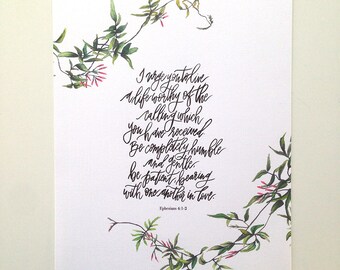 I urge you to live
a life worthy of the
calling which
you have received
Be completely humble
and gentle.
be patient, bearing
with one another in love.
Ephesians 4:1-2